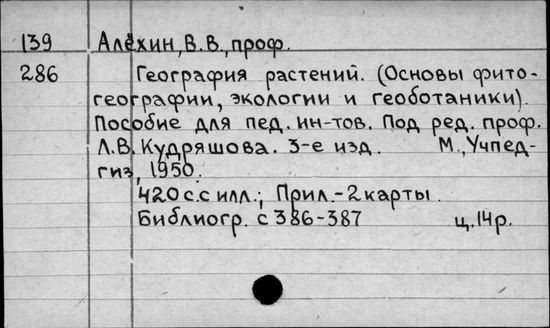 139 Алёхин, В.В., проф.
286 География растений. (Основы фито-
географии, экологии и геоботаники).
Пособие для пед. ин-тов. Под ред. проф.
Л.В. Кудряшова. 3-е изд. М., Учпед-
гиз, 1950.
420 с. с илл.; Прил.-2 карты.
Библиогр. с 386-387 ц. 14 р.